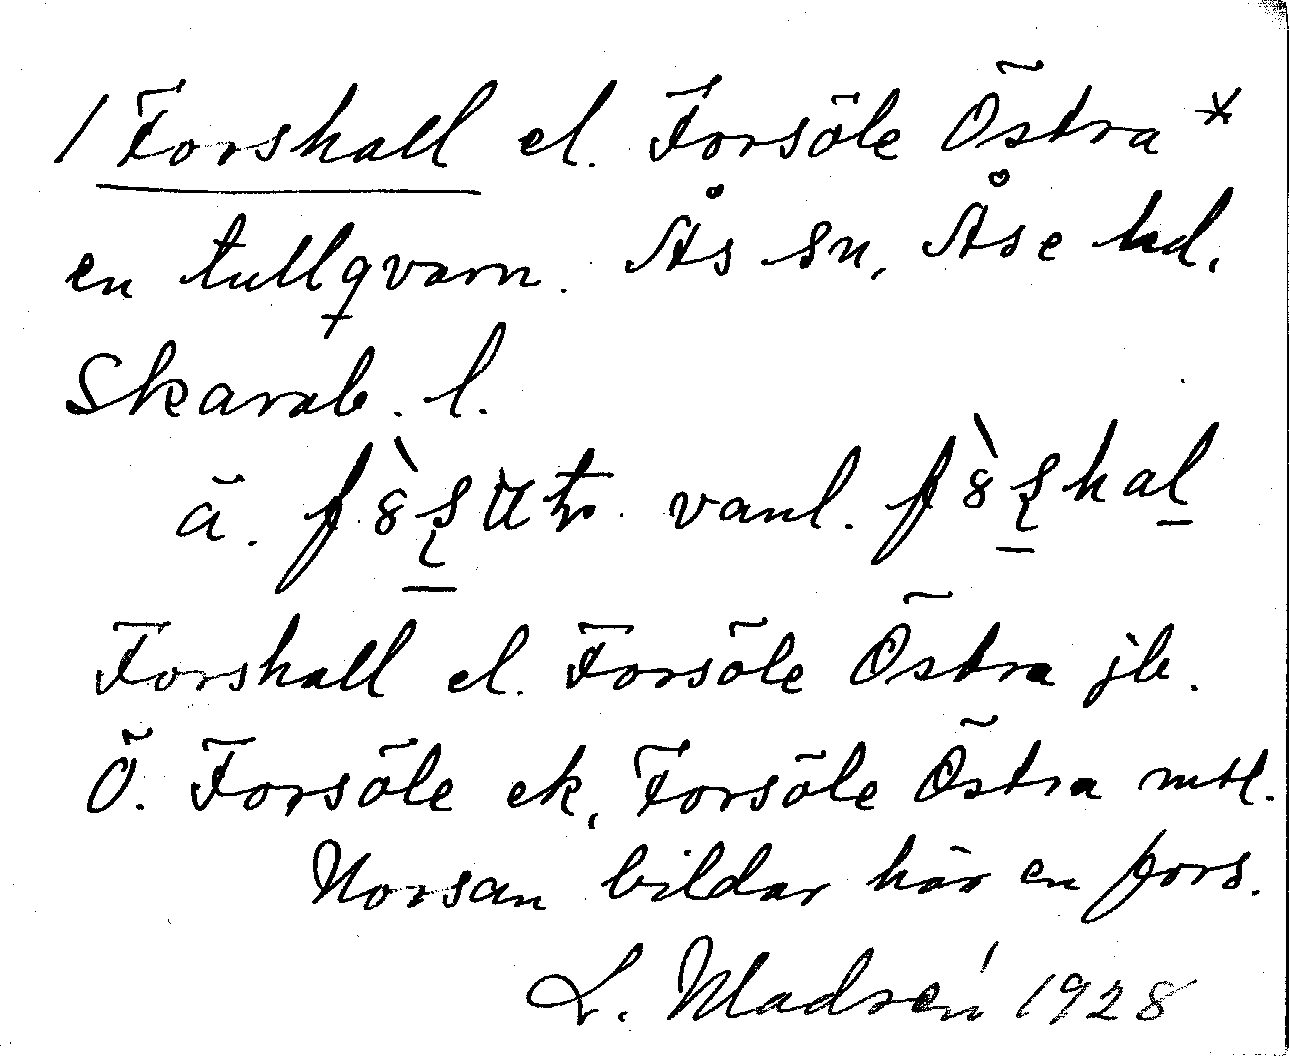 / Forshall el. Forsöle Östra *
en tullqvarn. Ås sn, Åse hd.
Skarab. l.
a. vanl.
Forshall el. Forsöle Östra jb.
Ö. Forsöle ek, Forsöle Östra mtl.
Norsan bildar här en fors.
L. Madsén 1928